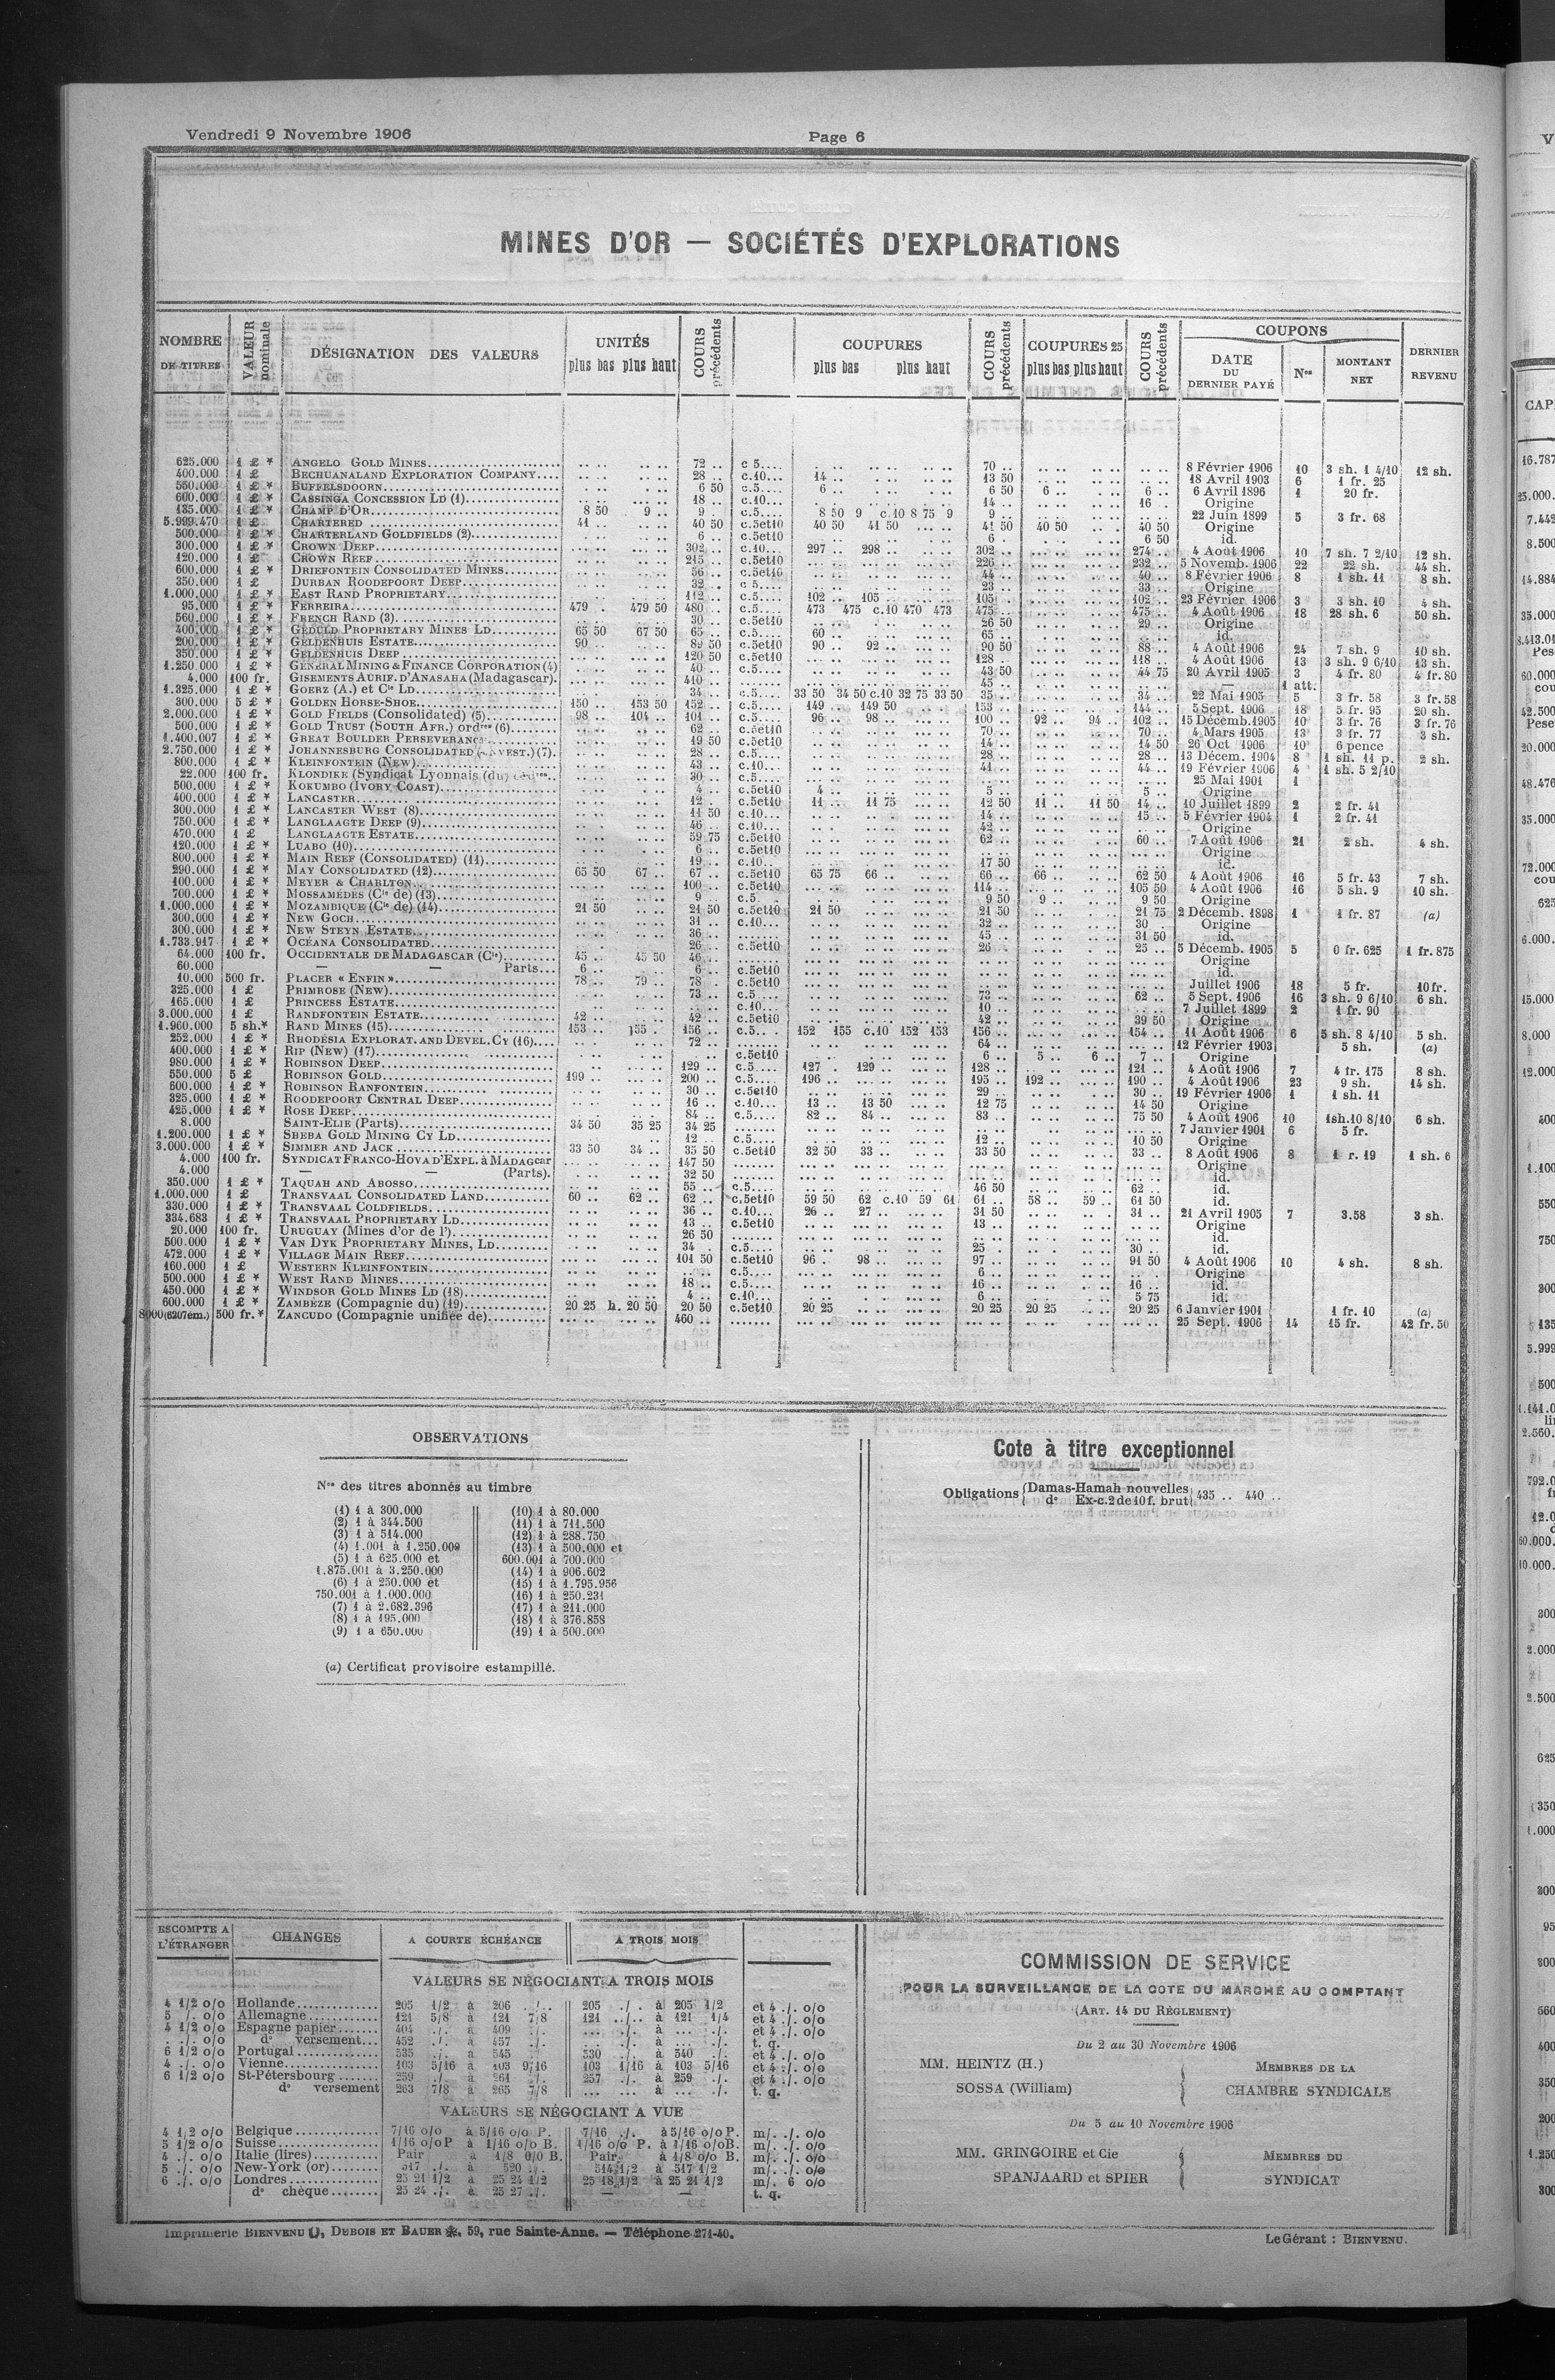 Vendredi 9 Novembre 1906
Page 6
MINES D'OR — SOCIÉTÉS D'EXPLORATIONS
NOMBRE DE TITRES
VALEUR nominale
DÉSIGNATION DES VALEURS
UNITÉS
plus bas plus haut
COURS précédents
COUPURES
plus bas plus haut
COURS précédents
COUPURES 25
plus bas plus haut
COURS précédents
COUPONS
DATE DU DERNIER PAYÉ
Nos
MONTANT NET
DERNIER REVENU
625.000 1 £ * ANGELO GOLD MINES 72 .. c 5.... 70 .. 8 Février 1906 10 3 sh. 1 4/10 12 sh.
400.000 1 £ BECHUANALAND EXPLORATION COMPANY 28 .. c.10... 14 .. 13 50 18 Avril 1903 6 1 fr. 25
550.000 1 £ * BUFFELSDOORN 6 50 c.5.... 6 .. 6 50 6 .. 6 .. 6 Avril 1896 1 20 fr.
600.000 1 £ * CASSINGA CONCESSION LD (1) 18 .. c.10... 14 .. 16 . Origine
135.000 1 £ * CHAMP D'OR 8 50 9 .. 9 . c.5.... 8 50 9 c.10 8 75 9 9 .. 22 Juin 1899 5 3 fr. 68
5.999.470 1 £ CHARTERED 41 .. 40 50 c.5et10 40 50 41 50 41 50 40 50 40 50 Origine
500.000 1 £ * CHARTERLAND GOLDFIELDS (2) 6 .. c.5et10 6 . 6 50 id.
300.000 1 £ * CROWN DEEP 302 .. c.10... 297 .. 298 .. 302 .. 274 .. 4 Août 1906 10 7 sh. 7 2/10 12 sh.
120.000 1 £ CROWN REEF 215 .. c.5et10 226 .. 232 .. 5 Novemb. 1906 22 22 sh. 44 sh.
600.000 1 £ * DRIEFONTEIN CONSOLIDATED MINES 56 .. c.5et10 44 .. 40 .. 8 Février 1906 8 1 sh. 11 8 sh.
350.000 1 £ DURBAN ROODEPOORT DEEP 32 .. c.5.... 23 .. 33 .. Origine
1.000.000 1 £ * EAST RAND PROPRIETARY 112 .. c.5.... 102 .. 105 .. 105 . 102 .. 23 Février 1906 3 3 sh. 10 4 sh.
95.000 1 £ * FERREIRA 479 . 479 50 480 .. c.5.... 473 475 c.10 470 473 475 .. 475 .. 4 Août 1906 18 28 sh. 6 50 sh.
560.000 1 £ * FRENCH RAND (3) 30 .. c.5et10 26 50 29 .. Origine
400.000 1 £ * GEDULD PROPRIETARY MINES LD 65 50 67 50 65 .. c.5.... 60 .. 65 .. id.
200.000 1 £ * GELDENHUIS ESTATE 90 .. 89 50 c.5et10 90 .. 92 .. 90 50 88 .. 4 Août 1906 24 7 sh. 9 10 sh.
350.000 1 £ * GELDENHUIS DEEP 120 50 c.5et10 128 .. 118 .. 4 Août 1906 13 3 sh. 9 6/10 13 sh.
1.250.000 1 £ * GENERAL MINING & FINANCE CORPORATION (4) 40 .. c.5.... 43 50 44 75 20 Avril 1905 3 4 fr. 80 4 fr. 80
4.000 100 fr. GISEMENTS AURIF. D'ANASAHA (Madagascar). 410 .. 45 .. — 1 att.
1.325.000 1 £ * GOERZ (A.) et Cie LD 34 .. c.5.... 33 50 34 50 c.10 32 75 33 50 35 .. 34 .. 22 Mai 1905 5 3 fr. 58 3 fr. 58
300.000 5 £ * GOLDEN HORSE-SHOE 150 .. 153 50 152 .. c.5.... 149 .. 149 50 153 .. 144 .. 5 Sept. 1906 18 5 fr. 95 20 sh.
2.000.000 1 £ * GOLD FIELDS (Consolidated) (5) 98 .. 101 .. 101 .. c.5.... 96 .. 98 .. 100 .. 92 .. 94 .. 102 .. 15 Décemb. 1905 10 3 fr. 76 3 fr. 76
500.000 1 £ * GOLD TRUST (SOUTH AFR.) ordres (6) 62 .. c.5et10 70 .. 70 .. 4 Mars 1905 13 3 fr. 77 3 sh.
1.400.007 1 £ * GREAT BOULDER PERSEVERANCE 19 50 c.5et10 14 .. 14 50 26 Oct 1906 10 6 pence
2.750.000 1 £ * JOHANNESBURG CONSOLIDATED (7) 28 .. c.5.... 28 .. 28 .. 13 Décem. 1904 8 1 sh. 11 p. 2 sh.
800.000 1 £ * KLEINFONTEIN (New) 43 .. c.10... 41 .. 44 .. 19 Février 1906 4 1 sh. 5 2/10
22.000 100 fr. KLONDIKE (Syndicat Lyonnais (du) 30 .. c.5.... 25 Mai 1901 1
500.000 1 £ * KOKUMBO (IVORY COAST) 4 .. c.5et10 4 .. 5 .. 5 .. Origine
400.000 1 £ * LANCASTER 12 . c.5et10 11 .. 11 75 12 50 11 .. 11 50 14 .. 10 Juillet 1899 2 2 fr. 41
300.000 1 £ * LANCASTER WEST (8) 11 50 c.10... 14 .. 15 .. 5 Février 1904 1 2 fr. 41
750.000 1 £ * LANGLAAGTE DEEP (9) 46 .. c.10... 42 .. Origine
470.000 1 £ LANGLAAGTE ESTATE 59 75 c.5et10 62 .. 60 .. 7 Août 1906 21 2 sh. 4 sh.
120.000 1 £ * LUABO (10) 6 .. c.5et10 Origine
800.000 1 £ * MAIN REEF (CONSOLIDATED) (11) 19 .. c.10.. 17 50 id.
290.000 1 £ * MAY CONSOLIDATED (12) 65 50 67 .. 67 .. c.5et10 65 75 66 .. 66 .. 66 .. 62 50 4 Août 1906 16 5 fr. 43 7 sh.
100.000 1 £ * MEYER & CHARLTON 100 .. c.5et10 114 .. 105 50 4 Août 1906 16 5 sh. 9 10 sh.
700.000 1 £ * MOSSAMÉDÈS (Cie de) (13) 9 .. c.5. 9 50 9 .. 9 50 Origine
1.000.000 1 £ * MOZAMBIQUE (Cie de) (14) 21 50 21 50 c.5et10 21 50 21 50 21 75 2 Décemb. 1898 1 1 fr. 87 (a)
300.000 1 £ * NEW GOCH 31 .. c.10... 32 .. 30 . Origine
300.000 1 £ * NEW STEYN ESTATE 36 .. 45 .. 31 50 id.
1.733.917 1 £ * OCÉANA CONSOLIDATED 26 .. c.5et10 26 .. 25 .. 5 Décemb. 1905 5 0 fr. 625 1 fr. 875
64.000 100 fr. OCCIDENTALE DE MADAGASCAR (Cie) 45 .. 45 50 46 .. Origine
60.000 — — Parts... 6 .. 6 .. c.5et10 id.
10.000 500 fr. PLACER « ENFIN » 78 .. 79 .. 78 . c.5et10 Juillet 1906 18 5 fr. 10 fr.
325.000 1 £ PRIMROSE (NEW) 73 .. c.5.... 73 .. 62 .. 5 Sept. 1906 16 3 sh. 9 6/10 6 sh.
165.000 1 £ PRINCESS ESTATE c.10... 10 .. 7 Juillet 1899 2 1 fr. 90
3.000.000 1 £ RANDFONTEIN ESTATE 42 .. 42 .. c.5et10 42 .. 39 50 Origine
1.960.000 5 sh.* RAND MINES (15) 153 .. 155 . 156 .. c.5.. . 152 155 c.10 152 153 156 .. 154 .. 11 Août 1906 6 5 sh. 8 4/10 5 sh.
252.000 1 £ * RHODÉSIA EXPLORAT. AND DEVEL. CY (16) 72 .. 64 .. 12 Février 1903 5 sh. (a)
400.000 1 £ * RIP (NEW) (17) c.5et10 6 .. 5 .. 6 .. 7 .. Origine
980.000 1 £ * ROBINSON DEEP 129 .. c.5.... 127 . 129 .. 128 .. 121 .. 4 Août 1906 7 4 fr. 175 8 sh.
550.000 5 £ ROBINSON GOLD 199 .. 200 .. c.5.... 196 .. 195 .. 192 .. 190 .. 4 Août 1906 23 9 sh. 14 sh.
600.000 1 £ * ROBINSON RANFONTEIN 30 .. c.5et10 29 .. 30 .. 19 Février 1906 1 1 sh. 11
325.000 1 £ * ROODEPOORT CENTRAL DEEP 16 .. c.10... 13 .. 13 50 12 75 14 50 Origine
425.000 1 £ * ROSE DEEP 84 .. c.5.... 82 .. 84 .. 83 .. 75 50 4 Août 1906 10 1sh.10 8/10 6 sh.
8.000 SAINT-ELIE (Parts) 34 50 35 25 34 25 7 Janvier 1901 6 5 fr.
1.200.000 1 £ * SHEBA GOLD MINING CY LD 12 .. c.5.... 12 .. 10 50 Origine
3.000.000 1 £ * SIMMER AND JACK 33 50 34 .. 35 50 c.5et10 32 50 33 .. 33 50 33 .. 8 Août 1906 8 1 r. 19 1 sh. 6
4.000 100 fr. SYNDICAT FRANCO-HOVA D'EXPL. à MADAGcar 147 50 Origine
4.000 — (Parts). 32 50 id.
350.000 1 £ * TAQUAH AND ABOSSO 55 .. c.5.... 46 50 62 .. id.
1.000.000 1 £ TRANSVAAL CONSOLIDATED LAND 60 .. 62 .. 62 .. c.5et10 59 50 62 c.10 59 61 61 .. 58 .. 59 .. 61 50 id.
330.000 1 £ * TRANSVAAL COLDFIELDS 36 .. c.10... 26 .. 27 .. 31 50 31 .. 21 Avril 1905 7 3.58 3 sh.
334.683 1 £ * TRANSVAAL PROPRIETARY LD 13 .. c.5et10 13 .. Origine
20.000 100 fr. URUGUAY (Mines d'or de l') 26 50 id.
500.000 1 £ * VAN DYK PROPRIETARY MINES, LD 34 . c.5.... 25 . 30 .. id.
472.000 1 £ * VILLAGE MAIN REEF 101 50 c.5et10 96 . 98 .. 97 .. 91 50 4 Août 1906 10 4 sh. 8 sh.
160.000 1 £ WESTERN KLEINFONTEIN c.5.... 6 .. Origine
500.000 1 £ * WEST RAND MINES 18 .. c.5.... 16 .. 16 .. id.
450.000 1 £ * WINDSOR GOLD MINES LD (18) 4 .. c.10... 6 .. 5 75 id.
600.000 1 £ * ZAMBÈZE (Compagnie du) (19) 20 25 h. 20 50 20 50 c.5et10 20 25 20 25 20 25 20 25 6 Janvier 1901 1 fr. 10 (a)
8000(6207ém.) 500 fr.* ZANCUDO (Compagnie unifiée de) 460 .. 25 Sept. 1906 14 15 fr. 42 fr. 50
OBSERVATIONS
Nos des titres abonnés au timbre
(1) 1 à 300.000
(2) 1 à 344.500
(3) 1 à 514.000
(4) 1.001 à 1.250.000
(5) 1 à 625.000 et
1.875.001 à 3.250.000
(6) 1 à 250.000 et
750.001 à 1.000.000
(7) 1 à 2.682.396
(8) 1 à 195.000
(9) 1 à 650.000
(10) 1 à 80.000
(11) 1 à 711.500
(12) 1 à 288.750
(13) 1 à 500.000 et
600.001 à 700.000
(14) 1 à 906.602
(15) 1 à 1.795.956
(16) 1 à 250.231
(17) 1 à 211.000
(18) 1 à 376.858
(19) 1 à 500.000
(a) Certificat provisoire estampillé.
Cote à titre exceptionnel
Obligations { Damas-Hamah nouvelles } 435 .. 440 ..
do Ex-c. 2 de 10 f. brut
ESCOMPTE A L'ÉTRANGER
CHANGES
A COURTE ÉCHÉANCE
A TROIS MOIS
VALEURS SE NÉGOCIANT A TROIS MOIS
4 1/2 o/o Hollande 205 1/2 à 206 ./. 205 ./. à 205 1/2 et 4 ./. o/o
5 ./. o/o Allemagne 121 5/8 à 121 7/8 121 ../.. à 121 1/4 et 4 ./. o/o
4 1/2 o/o Espagne papier 404 ./. à 409 ./. ... ./. à ... ./. et 4 ./. o/o
. ./. o/o do versement... 452 ./. à 457 ./. ... ./. à ... ./. t. q.
6 1/2 o/o Portugal 535 ./. à 545 530 ./. à 540 ./. et 4 ./. o/o
4 ./. o/o Vienne 103 5/16 à 103 9/16 103 1/16 à 103 5/16 et 4 ./. o/o
6 1/2 o/o St-Pétersbourg 259 ./. à 261 ./. 257 ./. à 259 ./. et 4 ./. o/o
do versement 263 7/8 à 265 7/8 ... ... à ... ./. t. q.
VALEURS SE NÉGOCIANT A VUE
4 1/2 o/o Belgique 7/16 o/o à 5/16 o/o P. 7/16 ./. à 5/16 o/o P. m/. ./. o/o
5 1/2 o/o Suisse 1/16 o/o P à 1/16 o/o B. 1/16 o/o P. à 1/16 o/o B. m/. ./. o/o
4 ./. o/o Italie (lires) Pair à 1/8 o/o B. Pair. à 1/8 o/o B. m/. ./. o/o
5 ./. o/o New-York (or) 517 ./. à 520 ./. 514 1/2 à 517 1/2 m/. ./. o/o
6 ./. o/o Londres 25 21 1/2 à 25 24 1/2 25 18 1/2 à 25 21 1/2 m/. 6 o/o
do chèque 25 24 ./. à 25 27 ./. — — t. q.
COMMISSION DE SERVICE
POUR LA SURVEILLANCE DE LA COTE DU MARCHÉ AU COMPTANT
(ART. 14 DU RÈGLEMENT)
Du 2 au 30 Novembre 1906
MM. HEINTZ (H.)
SOSSA (William)
MEMBRES DE LA
CHAMBRE SYNDICALE
Du 5 au 10 Novembre 1906
MM. GRINGOIRE et Cie
SPANJAARD et SPIER
MEMBRES DU
SYNDICAT
Imprimerie BIENVENU, DUBOIS ET BAUER, 59, rue Sainte-Anne. — Téléphone 271-40.
Le Gérant : BIENVENU.